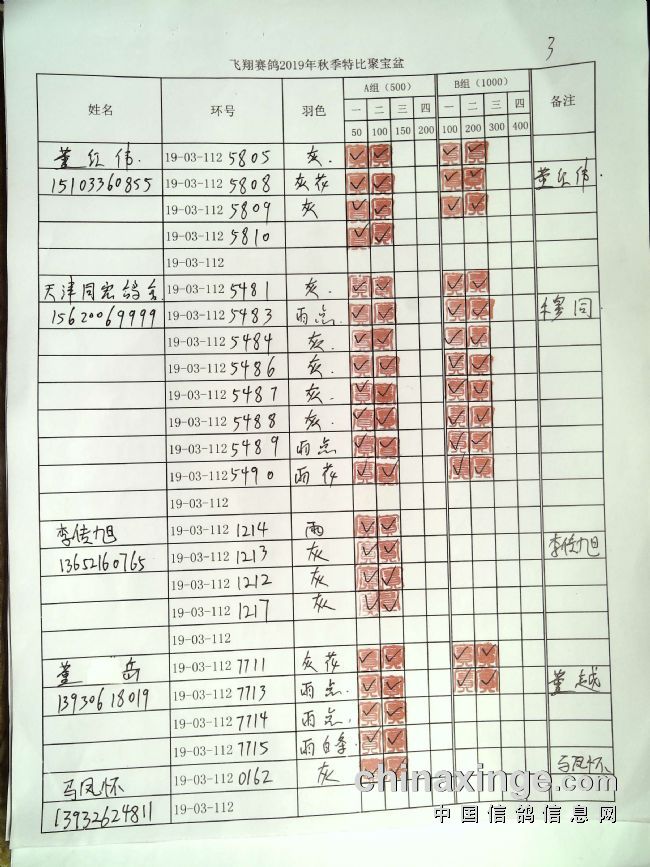 3
飞翔赛鸽2019年秋季特比聚宝盆
姓名 环号 羽色 A组（500） B组（1000） 备注
一 二 三 四 一 二 三 四
50 100 150 200 100 200 300 400
董红伟. 19-03-112 5805 灰. ✓ ✓ ✓ ✓
15103360855 19-03-112 5808 灰花 ✓ ✓ ✓ ✓ 董红伟.
19-03-112 5809 灰 ✓ ✓ ✓ ✓
19-03-112 5810 ✓ ✓
19-03-112
天津同宏鸽舍 19-03-112 5481 灰. ✓ ✓ ✓ ✓
15620069999 19-03-112 5483 雨点. ✓ ✓ ✓ ✓ 同
19-03-112 5484 灰. ✓ ✓ ✓ ✓
19-03-112 5486 灰. ✓ ✓ ✓ ✓
19-03-112 5487 灰. ✓ ✓ ✓ ✓
19-03-112 5488 灰. ✓ ✓ ✓ ✓
19-03-112 5489 雨点 ✓ ✓ ✓ ✓
19-03-112 5490 雨花 ✓ ✓ ✓ ✓
19-03-112
李传旭 19-03-112 1214 雨 ✓ ✓ 李传旭
13652160765 19-03-112 1213 灰 ✓ ✓
19-03-112 1212 灰 ✓ ✓
19-03-112 1217 灰 ✓ ✓
19-03-112
董岳 19-03-112 7711 灰花 ✓ ✓ ✓ ✓
13930618019 19-03-112 7713 雨点. ✓ ✓ ✓ ✓ 董越
19-03-112 7714 雨点. ✓ ✓
19-03-112 7715 雨白条 ✓ ✓
马凤怀 19-03-112 0162 灰 ✓ ✓ 马凤怀
13932624811 19-03-112
chinaxinge.com
中国信鸽信息网